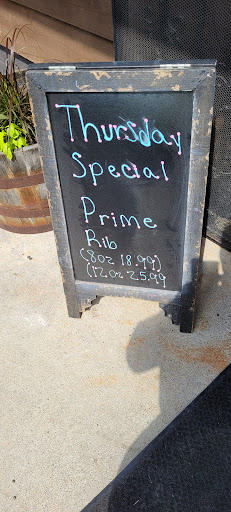 Thursday
Special
Prime
Rib
(8oz 18.99)
(12oz 25.99